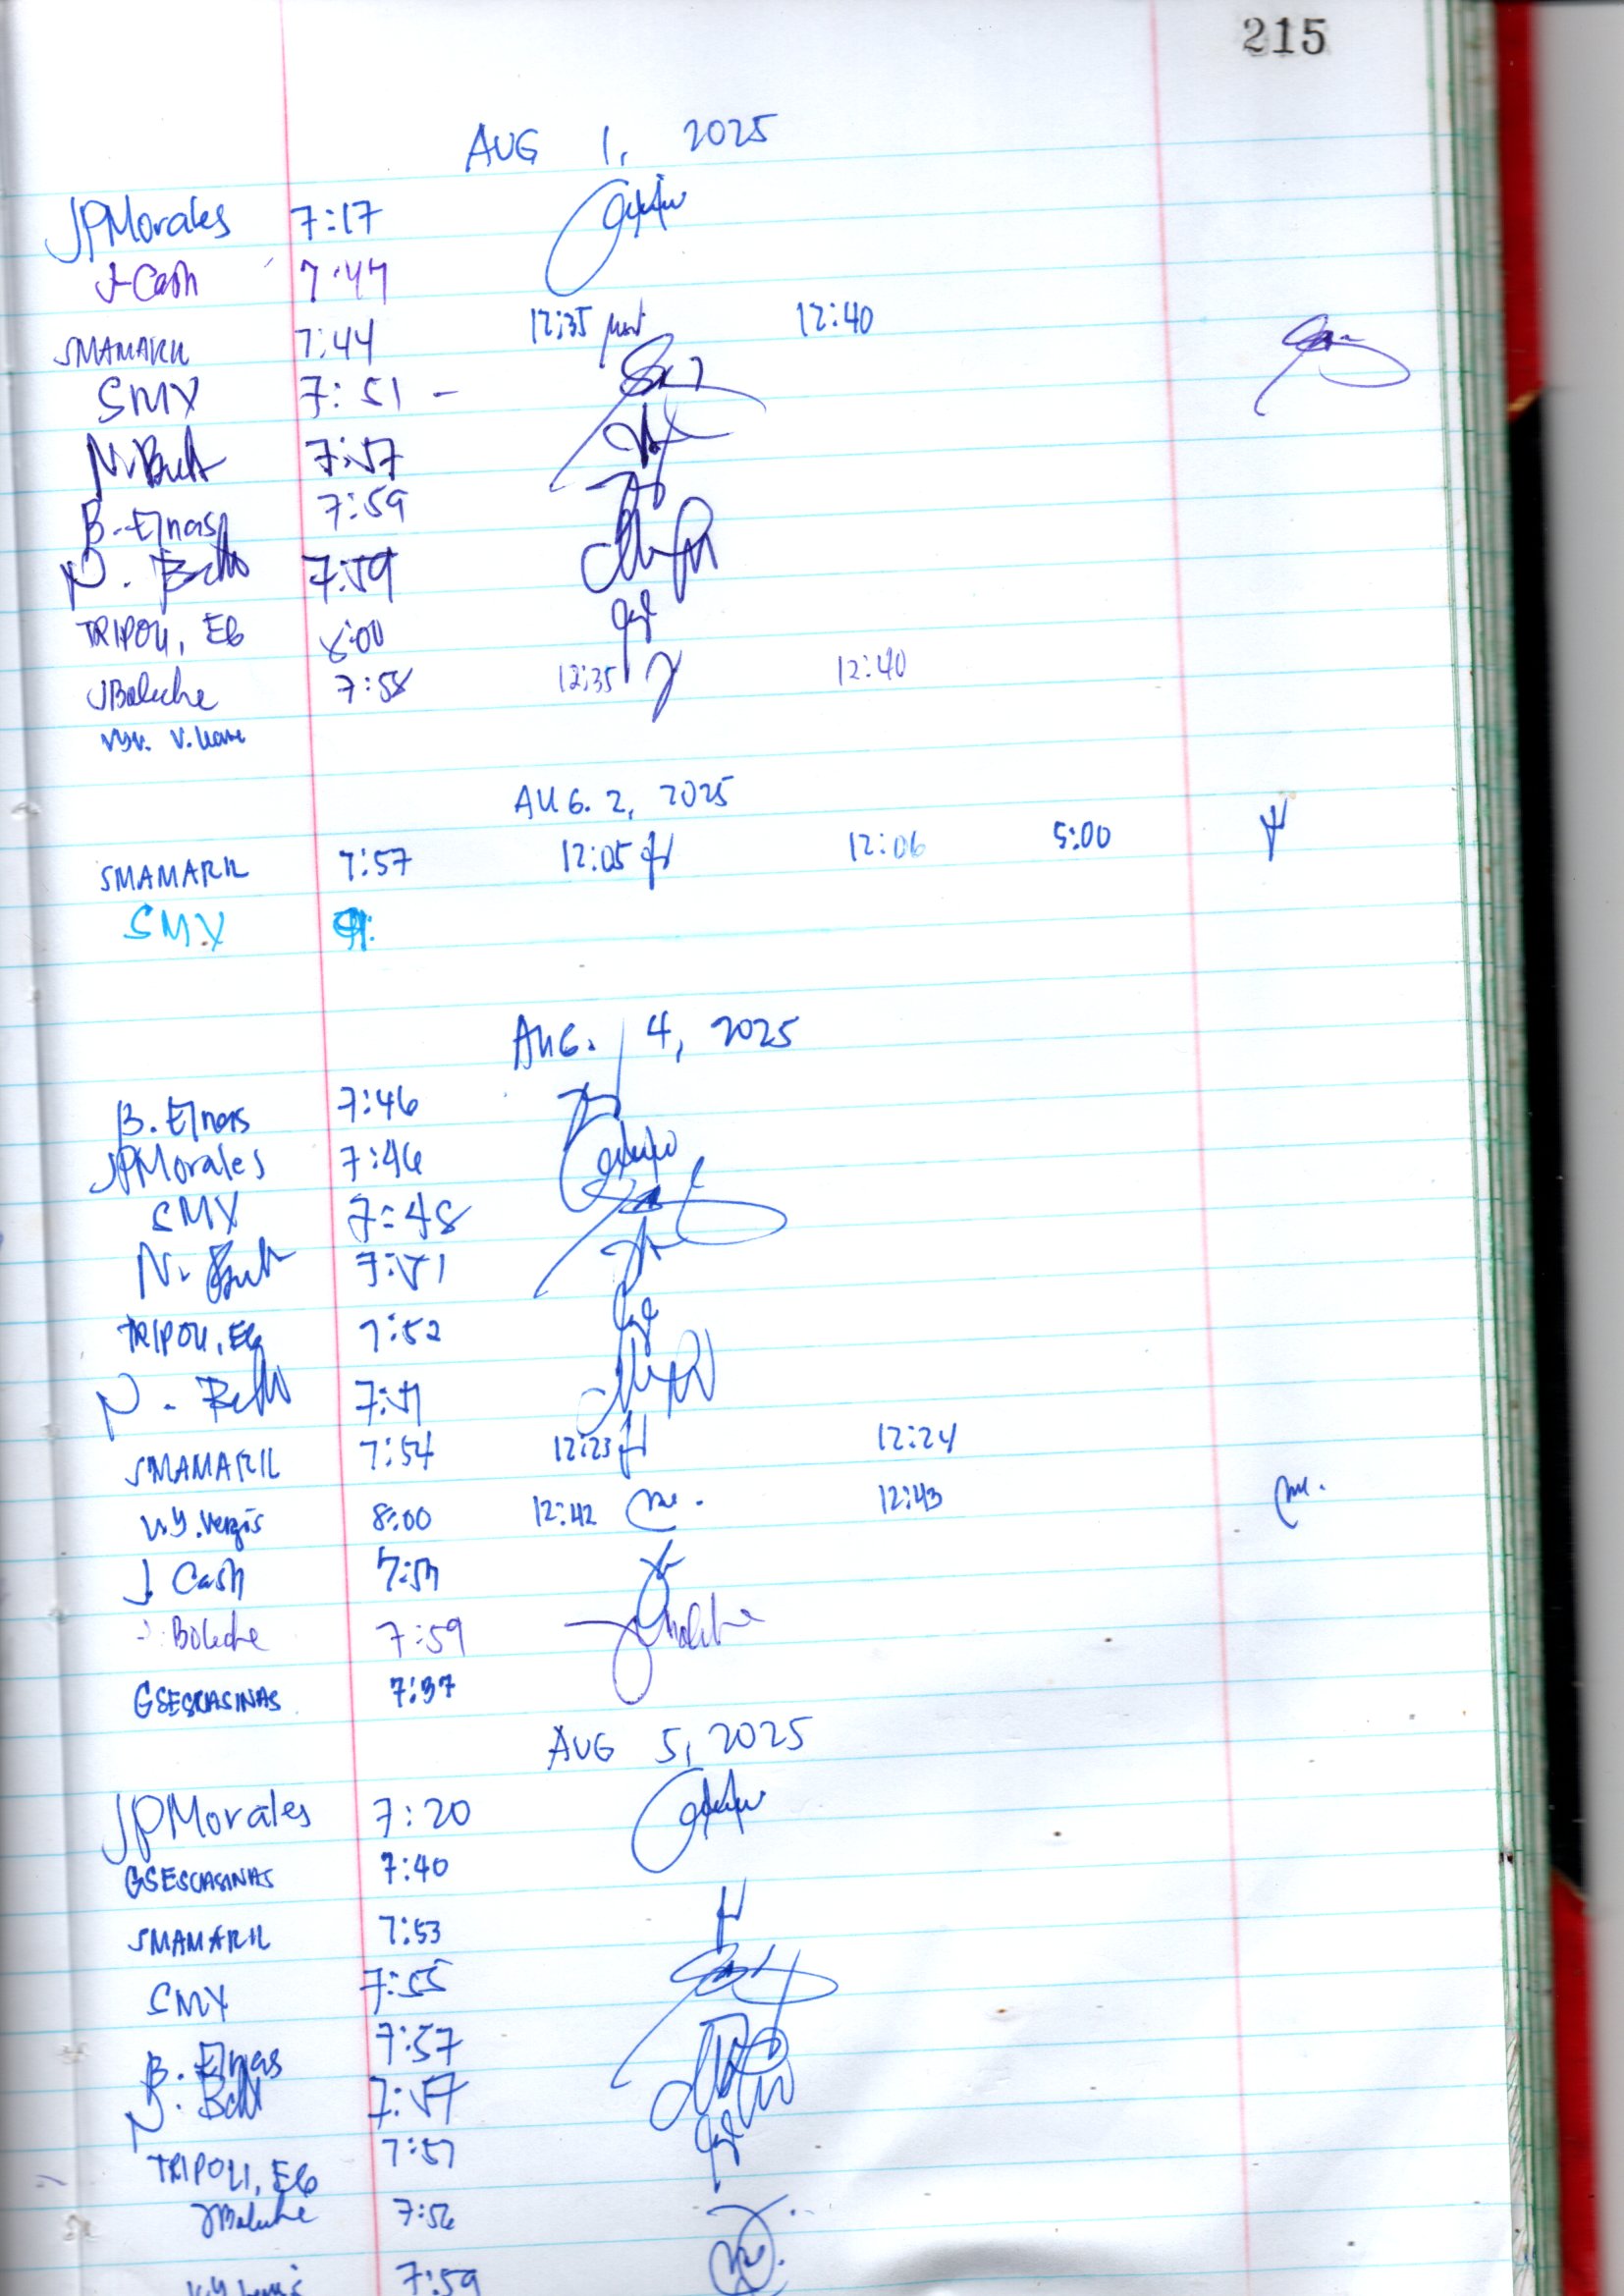 215
AUG 1, 2025
JPMorales 7:17
J-Cash 7:47
SMAMARIL 7:44 12:35 12:40
SMY 7:51 -
7:57
B. Ejnas 7:59
N. Bello 7:59
TRIPOLI, EG 8:00
JBoleche 7:58 12:35 12:40
AUG. 2, 2025
SMAMARIL 7:57 12:05 12:06 5:00
SMY
AUG. 4, 2025
B. Ejnas 7:46
JPMorales 7:46
SMY 7:48
7:51
TRIPOLI, EG 7:52
N. Bello 7:51
SMAMARIL 7:54 12:23 12:24
8:00 12:42 12:43
J. Cash
Boleche 7:59
GSESCASINAS 7:37
AUG 5, 2025
JPMorales 7:20
GSESCASINAS 7:40
SMAMARIL 7:53
SMY 7:55
B. Ejnas 7:57
7:57
TRIPOLI, EG 7:57
JBoleche 7:56
7:59